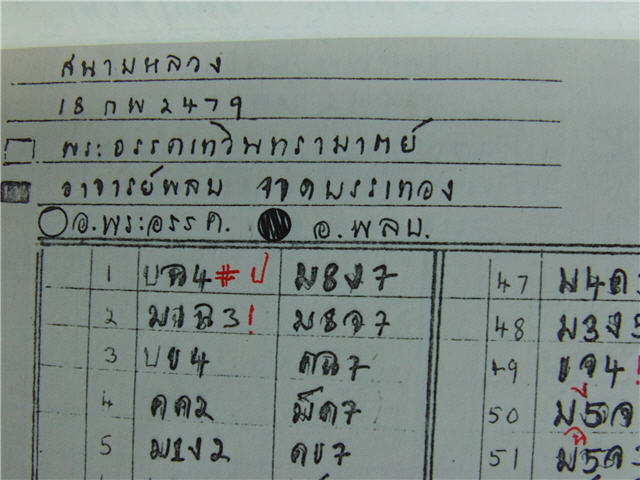 สนามหลวง
18 กพ 2479
พระอรรคเทวินทรามาตย์
อาจารย์พลบ จาดบรรเทอง
อ.พระอรรค. อ.พลบ.
1 บฉ4# ป ม8ง7 47 ม4ด
2 3! ม8จ7 48 ม3ง5
3 บข4 คฉ7 49 จ4!
4 คค2 ม็ด7 50
5 ม1ง2 คข7 51